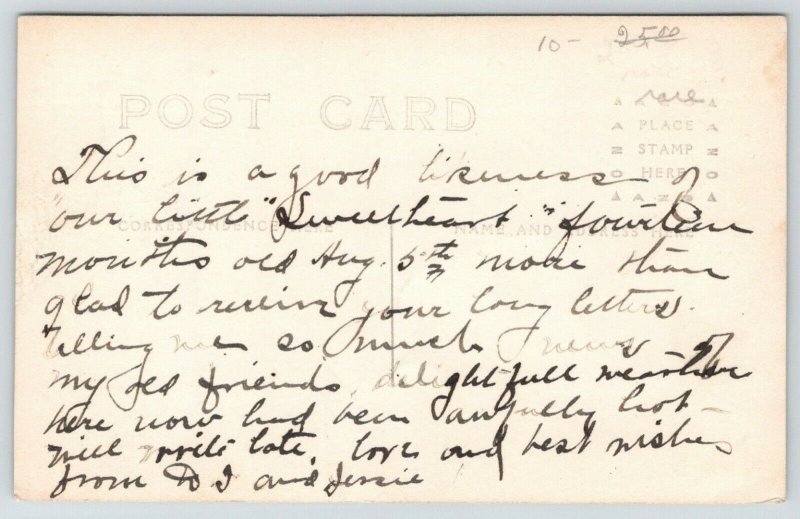 10- 25.00
rare
POST CARD
PLACE
STAMP
HERE
AZO
This is a good likeness of
"our little "Sweetheart" fourteen
CORRESPONDENCE HERE NAME AND ADDRESS HERE
months old Aug. 5th more than
glad to receive your long letters.
telling me so much news of
my old friends. delightfull weather
here now had been awfully hot
will write late. love and best wishes
from D J and Jessie